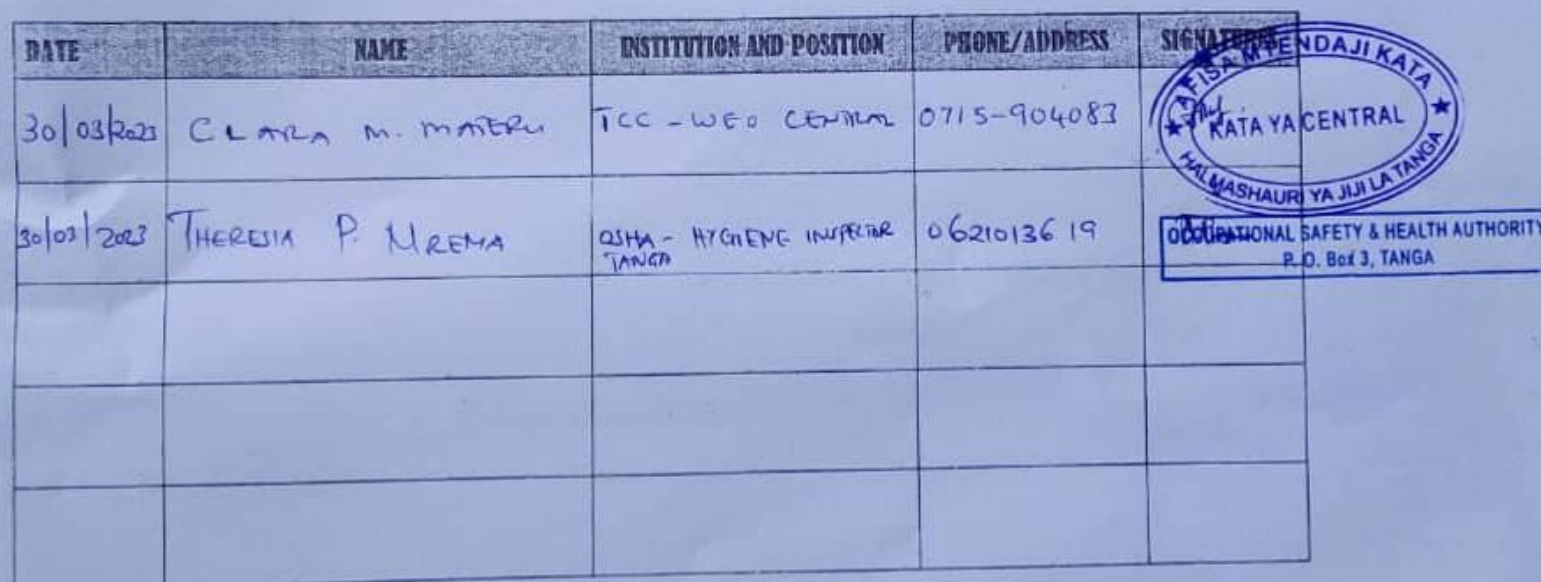 DATE NAME INSTITUTION AND POSITION PHONE/ADDRESS SIGNATURES
30/03/2023 CLARA M. MATERU TCC - WEO CENTRAL 0715-904083
AFISA MTENDAJI KATA
KATA YA CENTRAL
HALMASHAURI YA JIJI LA TANGA
30/03/2023 THERESIA P. MREMA OSHA - HYGIENE INSPECTOR 0621013619
TANGA
OCCUPATIONAL SAFETY & HEALTH AUTHORITY
P. O. Box 3, TANGA